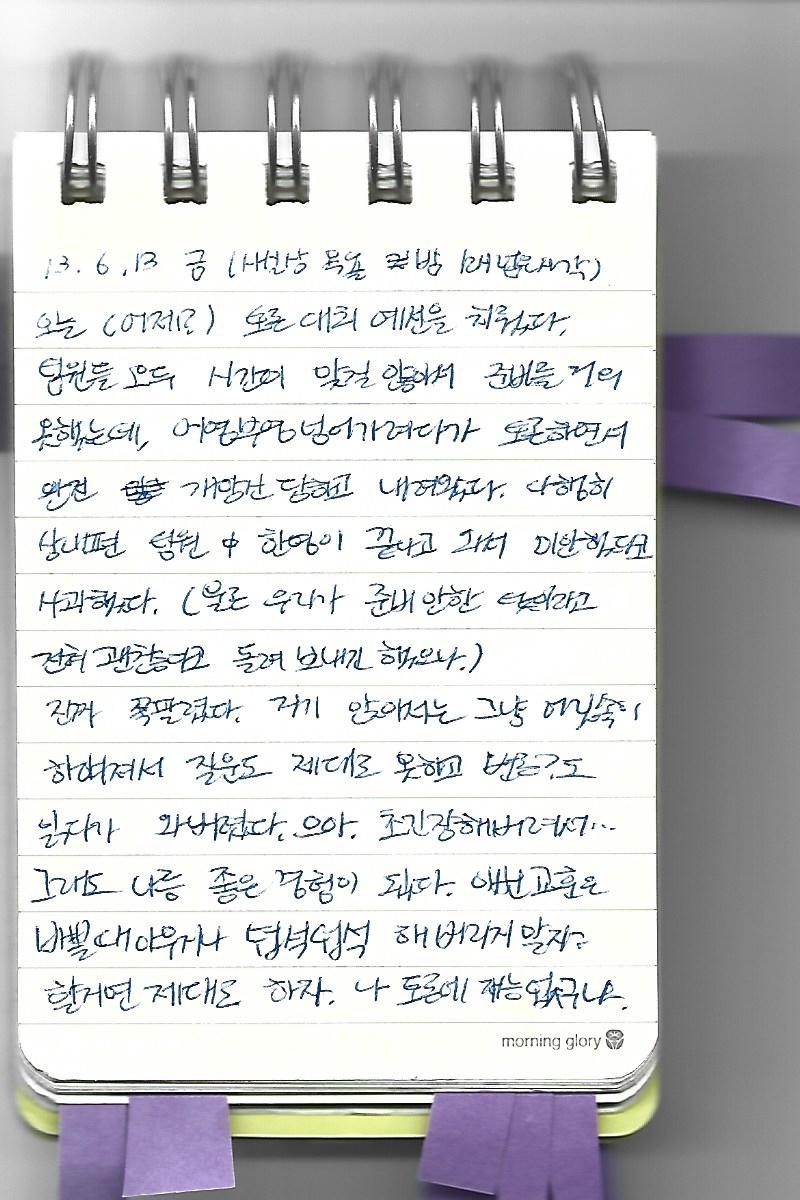 13. 6. 13 금 (사실상 목욜 밤
오늘 (어제!?) 토론 대회 예선을 치뤘다.
팀원들 모두 시간이 맞질 않아서 준비를 거의
못했는데, 어영부영 넘어가려다가 토론하면서
완전 개망신 당하고 내려왔다. 다행히
상대편 팀원 中 한명이 끝나고 와서 미안했다고
사과했다. (물론 우리가 준비 안한 탓이라고
전혀 괜찮다고 돌려 보내긴 했으나.)
진짜 쪽팔렸다. 저기 앉아서는 그냥 머릿속이
하얘져서 질문도 제대로 못하고 변론?도
일찍가 와버렸다. 으아. 초긴장해버려서...
그래도 나름 좋은 경험이 됐다. 이번 교훈은
바쁠 때 아무거나 덥석덥석 해버리지 말자?
할거면 제대로 하자. 나 토론에 재능 없구나.
morning glory